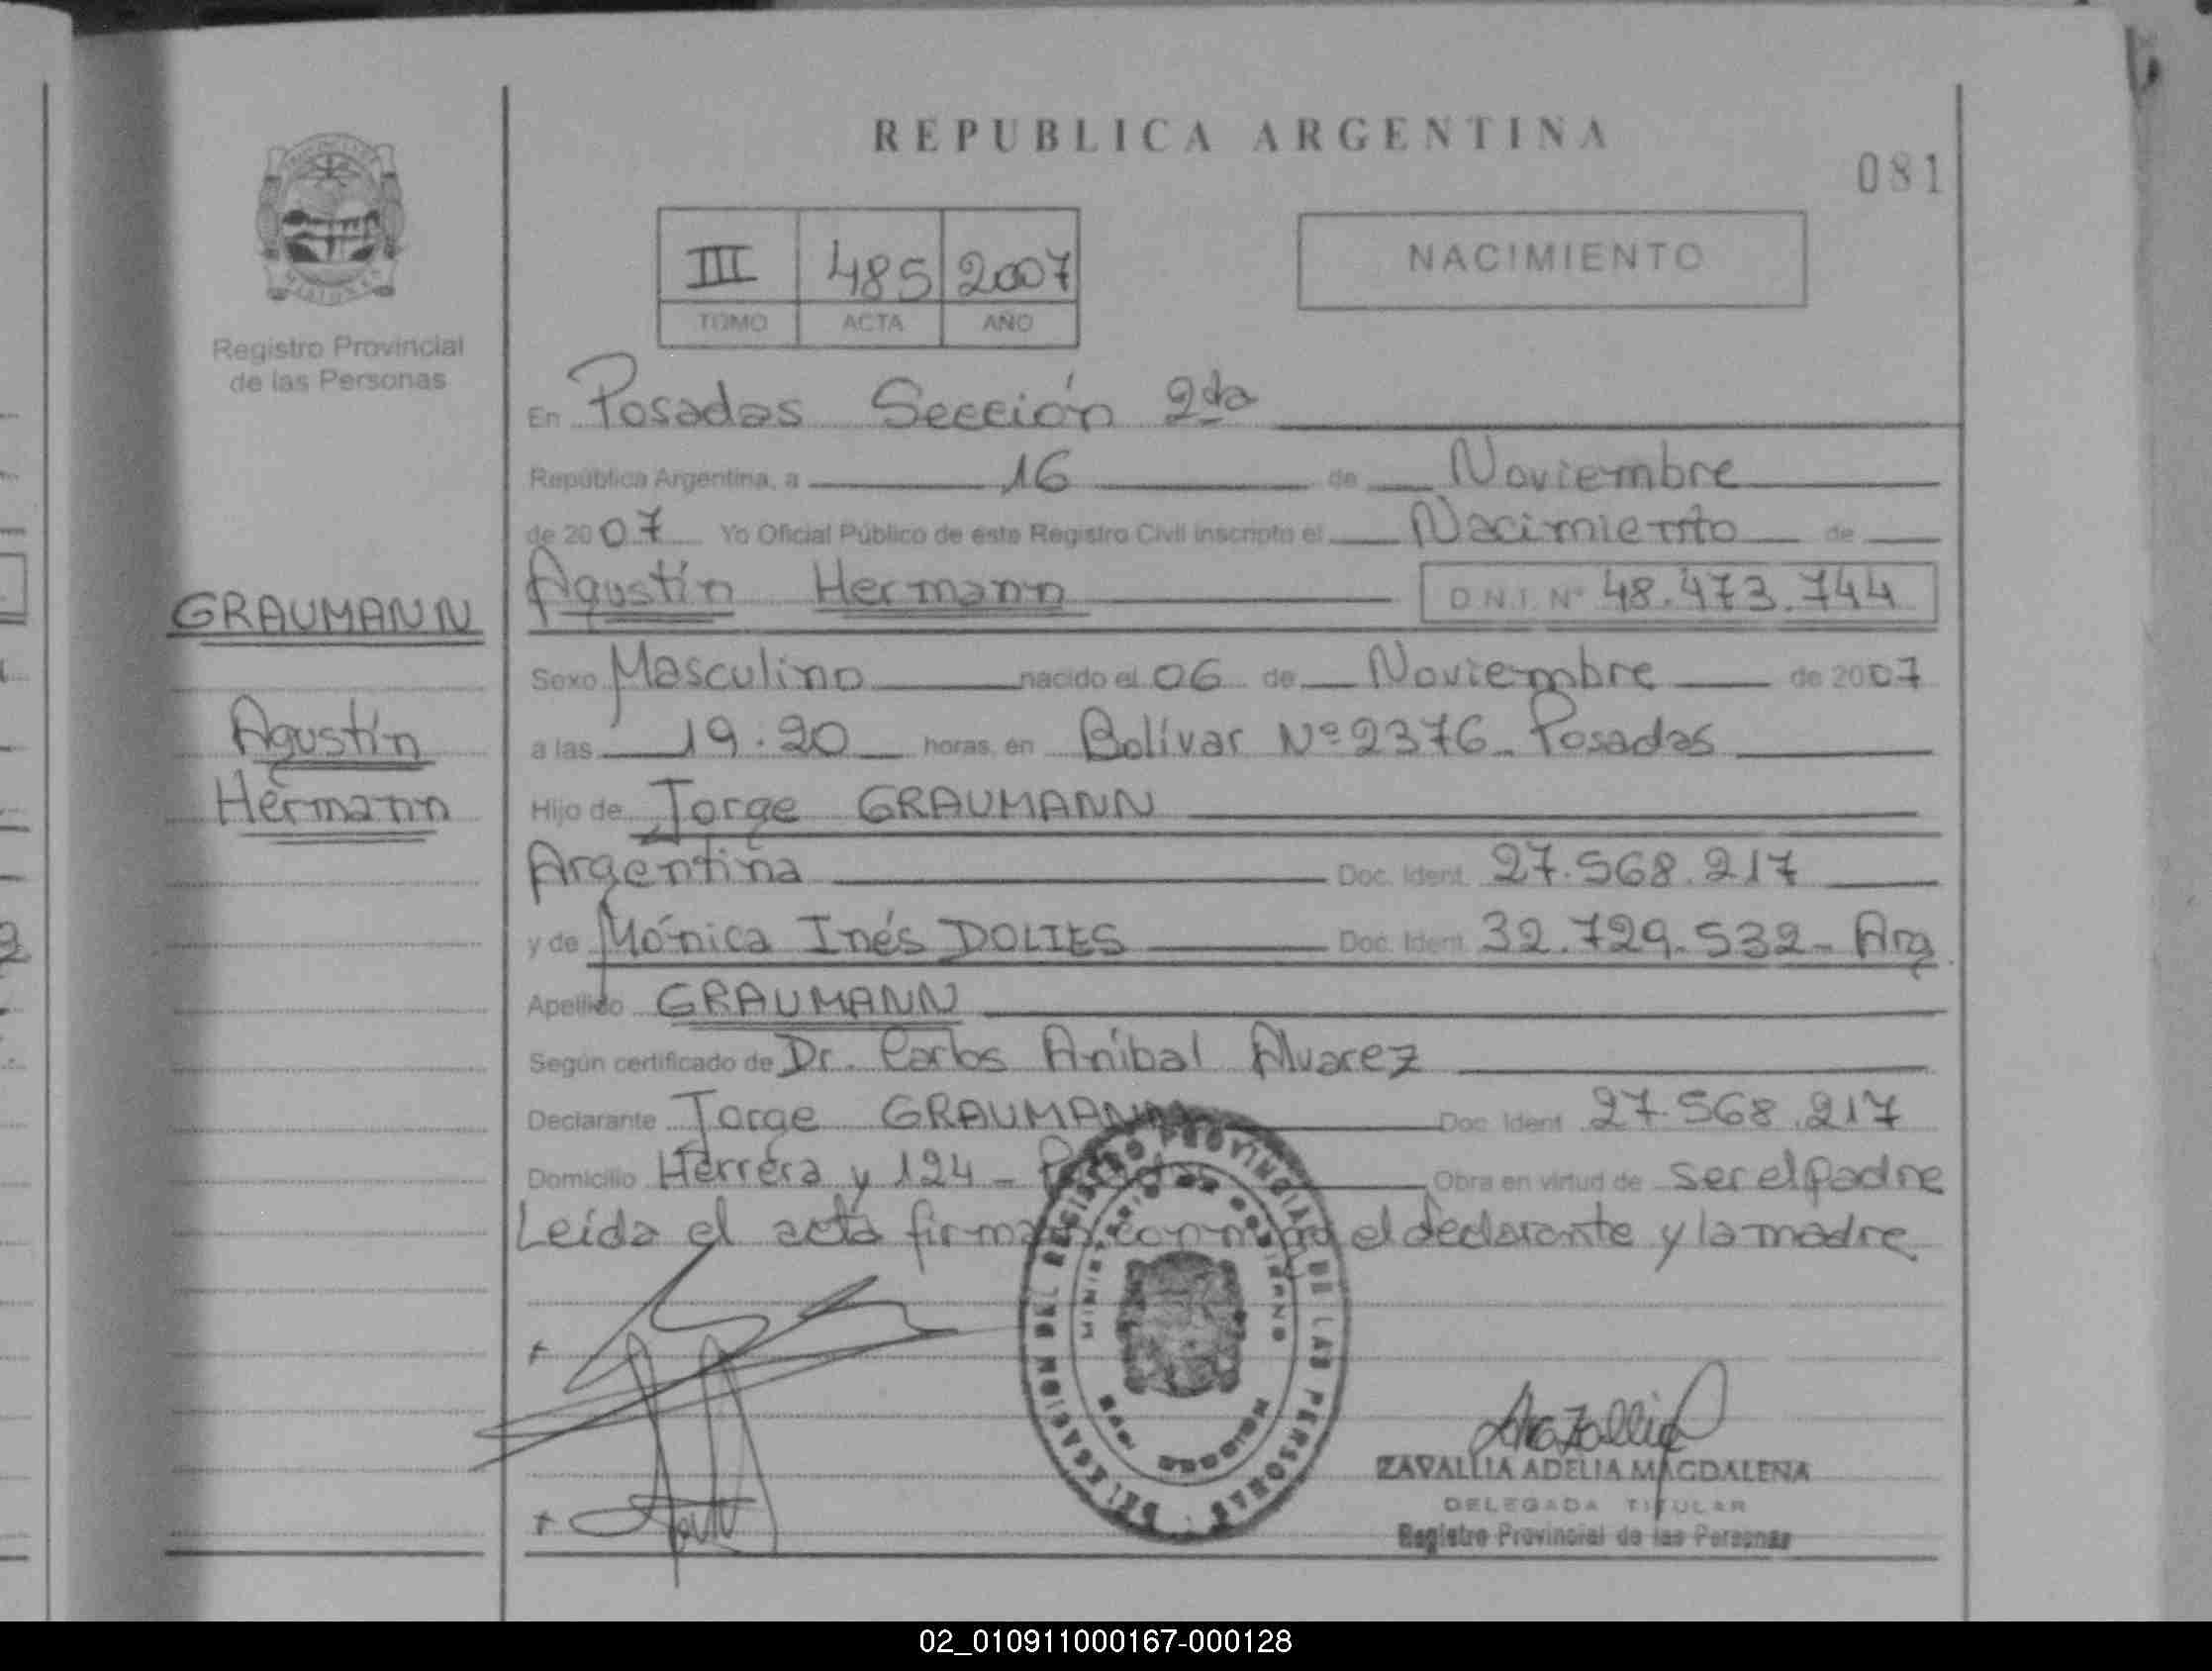 REPUBLICA ARGENTINA
081
III 485 2007
TOMO ACTA AÑO
NACIMIENTO
Registro Provincial
de las Personas
En Posadas Sección 2da
República Argentina, a 16 de Noviembre
de 2007 Yo Oficial Público de este Registro Civil inscripto el Nacimiento de
GRAUMANN
Agustín Hermann D.N.I. Nº 48.473.744
Sexo Masculino nacido el 06 de Noviembre de 2007
Agustín
a las 19.20 horas, en Bolívar Nº 2376 - Posadas
Hermann
Hijo de Jorge GRAUMANN
Argentina Doc. Ident. 27.568.217
y de Mónica Inés DOLIES Doc. Ident. 32.729.532 - Arg
Apellido GRAUMANN
Según certificado de Dr. Carlos Anibal Alvarez
Declarante Jorge GRAUMANN Doc. Ident. 27.568.217
Domicilio Herrera y 124 - Posadas Obra en virtud de ser el padre
Leída el acta firman conmigo el declarante y la madre
REGISTRO PROVINCIAL DE LAS PERSONAS
MINISTERIO DE GOBIERNO
ZAVALLIA ADELIA MAGDALENA
DELEGADA TITULAR
Registro Provincial de las Personas
02_010911000167-000128